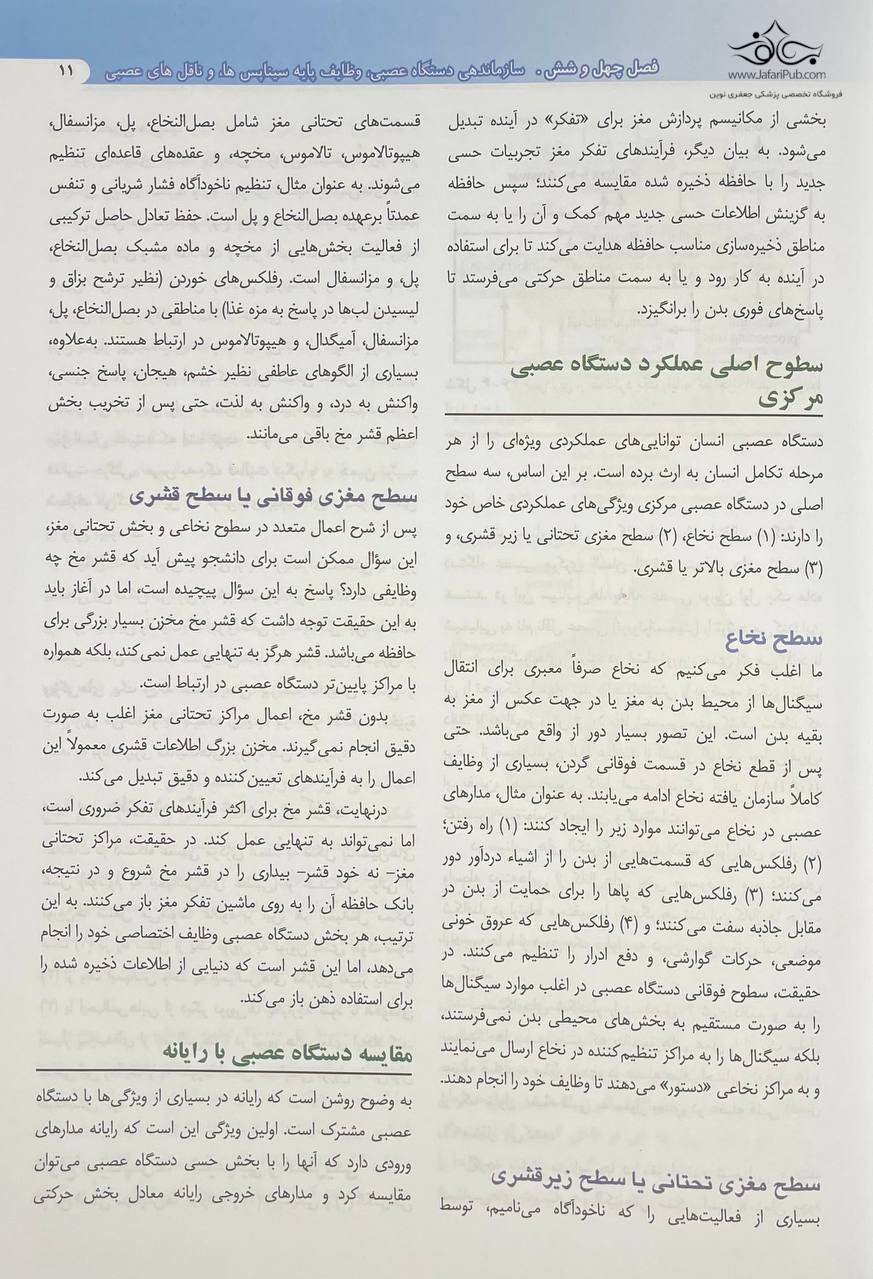 فصل چهل و شش . سازماندهی دستگاه عصبی، وظایف پایه سیناپس ها، و ناقل های عصبی
۱۱
www.JafariPub.com
فروشگاه تخصصی پزشکی جعفری نوین
بخشی از مکانیسم پردازش مغز برای «تفکر» در آینده تبدیل
می‌شود. به بیان دیگر، فرآیندهای تفکر مغز تجربیات حسی
جدید را با حافظه ذخیره شده مقایسه می‌کنند؛ سپس حافظه
به گزینش اطلاعات حسی جدید مهم کمک و آن را یا به سمت
مناطق ذخیره‌سازی مناسب حافظه هدایت می‌کند تا برای استفاده
در آینده به کار رود و یا به سمت مناطق حرکتی می‌فرستد تا
پاسخ‌های فوری بدن را برانگیزد.
سطوح اصلی عملکرد دستگاه عصبی
مرکزی
دستگاه عصبی انسان توانایی‌های عملکردی ویژه‌ای را از هر
مرحله تکامل انسان به ارث برده است. بر این اساس، سه سطح
اصلی در دستگاه عصبی مرکزی ویژگی‌های عملکردی خاص خود
را دارند: (۱) سطح نخاع، (۲) سطح مغزی تحتانی یا زیر قشری، و
(۳) سطح مغزی بالاتر یا قشری.
سطح نخاع
ما اغلب فکر می‌کنیم که نخاع صرفاً معبری برای انتقال
سیگنال‌ها از محیط بدن به مغز یا در جهت عکس از مغز به
بقیه بدن است. این تصور بسیار دور از واقع می‌باشد. حتی
پس از قطع نخاع در قسمت فوقانی گردن، بسیاری از وظایف
کاملاً سازمان یافته نخاع ادامه می‌یابند. به عنوان مثال، مدارهای
عصبی در نخاع می‌توانند موارد زیر را ایجاد کنند: (۱) راه رفتن؛
(۲) رفلکس‌هایی که قسمت‌هایی از بدن را از اشیاء دردآور دور
می‌کنند؛ (۳) رفلکس‌هایی که پاها را برای حمایت از بدن در
مقابل جاذبه سفت می‌کنند؛ و (۴) رفلکس‌هایی که عروق خونی
موضعی، حرکات گوارشی، و دفع ادرار را تنظیم می‌کنند. در
حقیقت، سطوح فوقانی دستگاه عصبی در اغلب موارد سیگنال‌ها
را به صورت مستقیم به بخش‌های محیطی بدن نمی‌فرستند،
بلکه سیگنال‌ها را به مراکز تنظیم‌کننده در نخاع ارسال می‌نمایند
و به مراکز نخاعی «دستور» می‌دهند تا وظایف خود را انجام دهند.
سطح مغزی تحتانی یا سطح زیرقشری
بسیاری از فعالیت‌هایی را که ناخودآگاه می‌نامیم، توسط
قسمت‌های تحتانی مغز شامل بصل‌النخاع، پل، مزانسفال،
هیپوتالاموس، تالاموس، مخچه، و عقده‌های قاعده‌ای تنظیم
می‌شوند. به عنوان مثال، تنظیم ناخودآگاه فشار شریانی و تنفس
عمدتاً برعهده بصل‌النخاع و پل است. حفظ تعادل حاصل ترکیبی
از فعالیت بخش‌هایی از مخچه و ماده مشبک بصل‌النخاع،
پل، و مزانسفال است. رفلکس‌های خوردن (نظیر ترشح بزاق و
لیسیدن لب‌ها در پاسخ به مزه غذا) با مناطقی در بصل‌النخاع، پل،
مزانسفال، آمیگدال، و هیپوتالاموس در ارتباط هستند. به‌علاوه،
بسیاری از الگوهای عاطفی نظیر خشم، هیجان، پاسخ جنسی،
واکنش به درد، و واکنش به لذت، حتی پس از تخریب بخش
اعظم قشر مخ باقی می‌مانند.
سطح مغزی فوقانی یا سطح قشری
پس از شرح اعمال متعدد در سطوح نخاعی و بخش تحتانی مغز،
این سؤال ممکن است برای دانشجو پیش آید که قشر مخ چه
وظایفی دارد؟ پاسخ به این سؤال پیچیده است، اما در آغاز باید
به این حقیقت توجه داشت که قشر مخ مخزن بسیار بزرگی برای
حافظه می‌باشد. قشر هرگز به تنهایی عمل نمی‌کند، بلکه همواره
با مراکز پایین‌تر دستگاه عصبی در ارتباط است.
بدون قشر مخ، اعمال مراکز تحتانی مغز اغلب به صورت
دقیق انجام نمی‌گیرند. مخزن بزرگ اطلاعات قشری معمولاً این
اعمال را به فرآیندهای تعیین‌کننده و دقیق تبدیل می‌کند.
درنهایت، قشر مخ برای اکثر فرآیندهای تفکر ضروری است،
اما نمی‌تواند به تنهایی عمل کند. در حقیقت، مراکز تحتانی
مغز– نه خود قشر– بیداری را در قشر مخ شروع و در نتیجه،
بانک حافظه آن را به روی ماشین تفکر مغز باز می‌کنند. به این
ترتیب، هر بخش دستگاه عصبی وظایف اختصاصی خود را انجام
می‌دهد، اما این قشر است که دنیایی از اطلاعات ذخیره شده را
برای استفاده ذهن باز می‌کند.
مقایسه دستگاه عصبی با رایانه
به وضوح روشن است که رایانه در بسیاری از ویژگی‌ها با دستگاه
عصبی مشترک است. اولین ویژگی این است که رایانه مدارهای
ورودی دارد که آنها را با بخش حسی دستگاه عصبی می‌توان
مقایسه کرد و مدارهای خروجی رایانه معادل بخش حرکتی